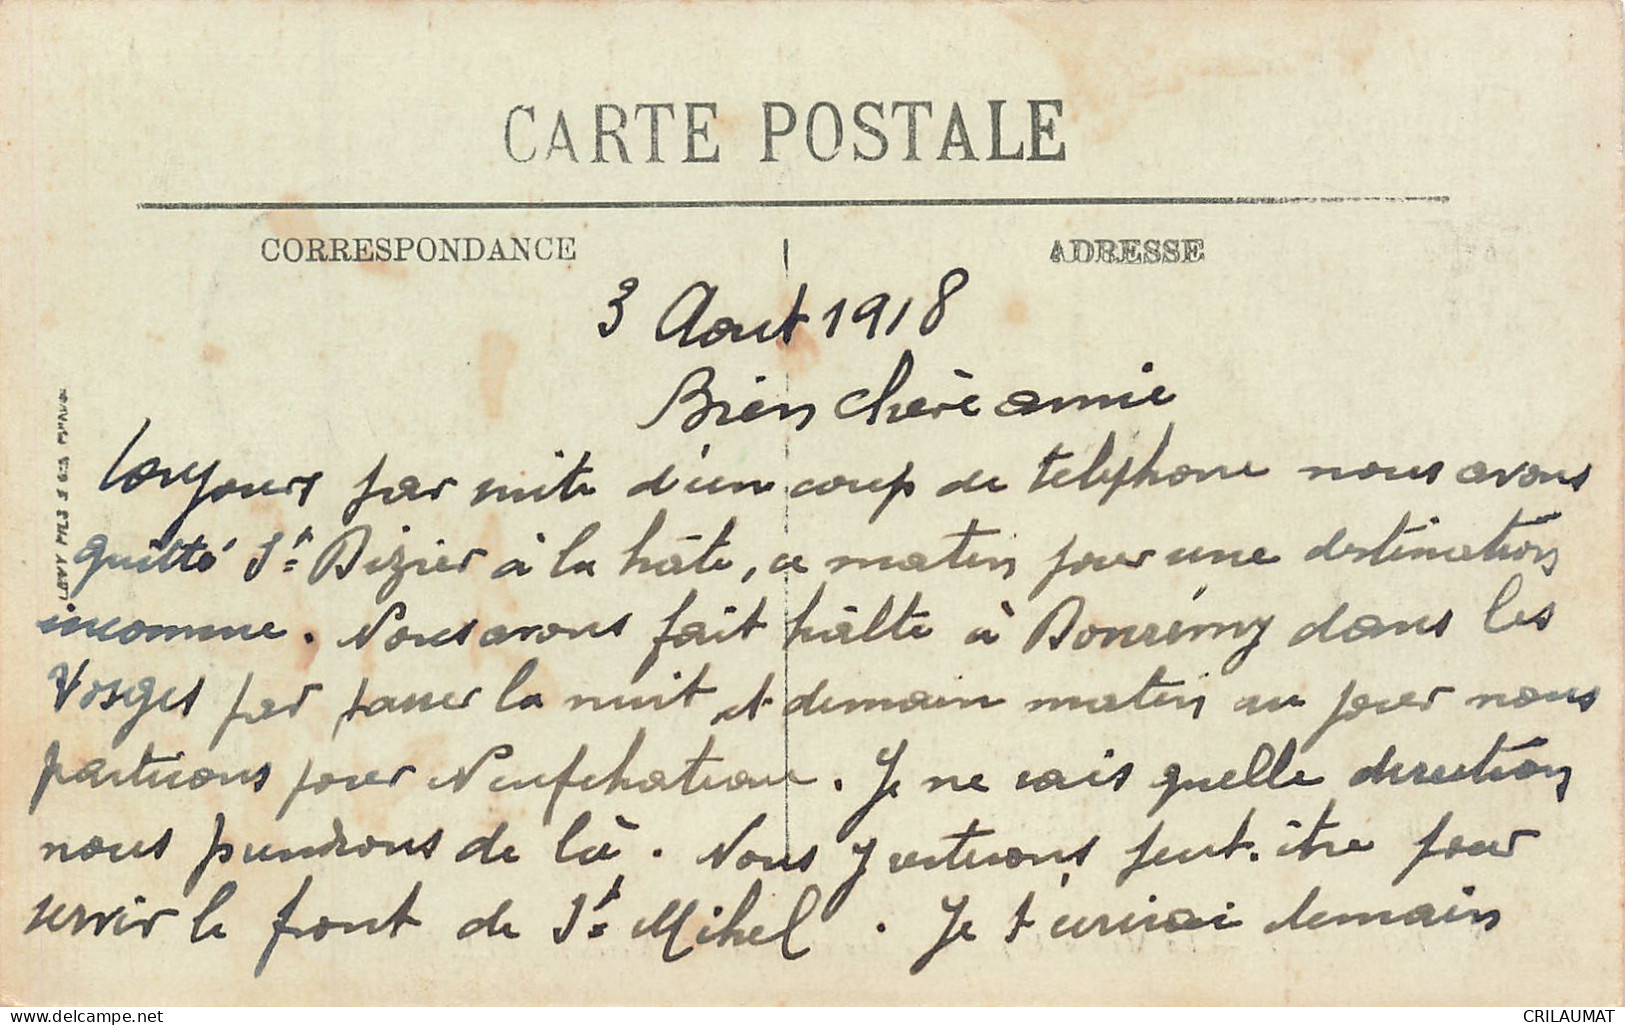 CARTE POSTALE
CORRESPONDANCE
ADRESSE
3 Aout 1918
Bien chère amie
Toujours par suite d'un coup de telephone nous avons
quitté St Dizier à la hâte, ce matin pour une destination
inconnue. Nous avons fait hâlte à Domrémy dans les
Vosges par passer la nuit et demain matin au jour nous
partirons pour Neufchateau. Je ne sais quelle direction
nous prendrons de là. Nous y resterons peut-être pour
servir le front de St Mihel. Je t'écrirai demain
www.delcampe.net
CRILAUMAT